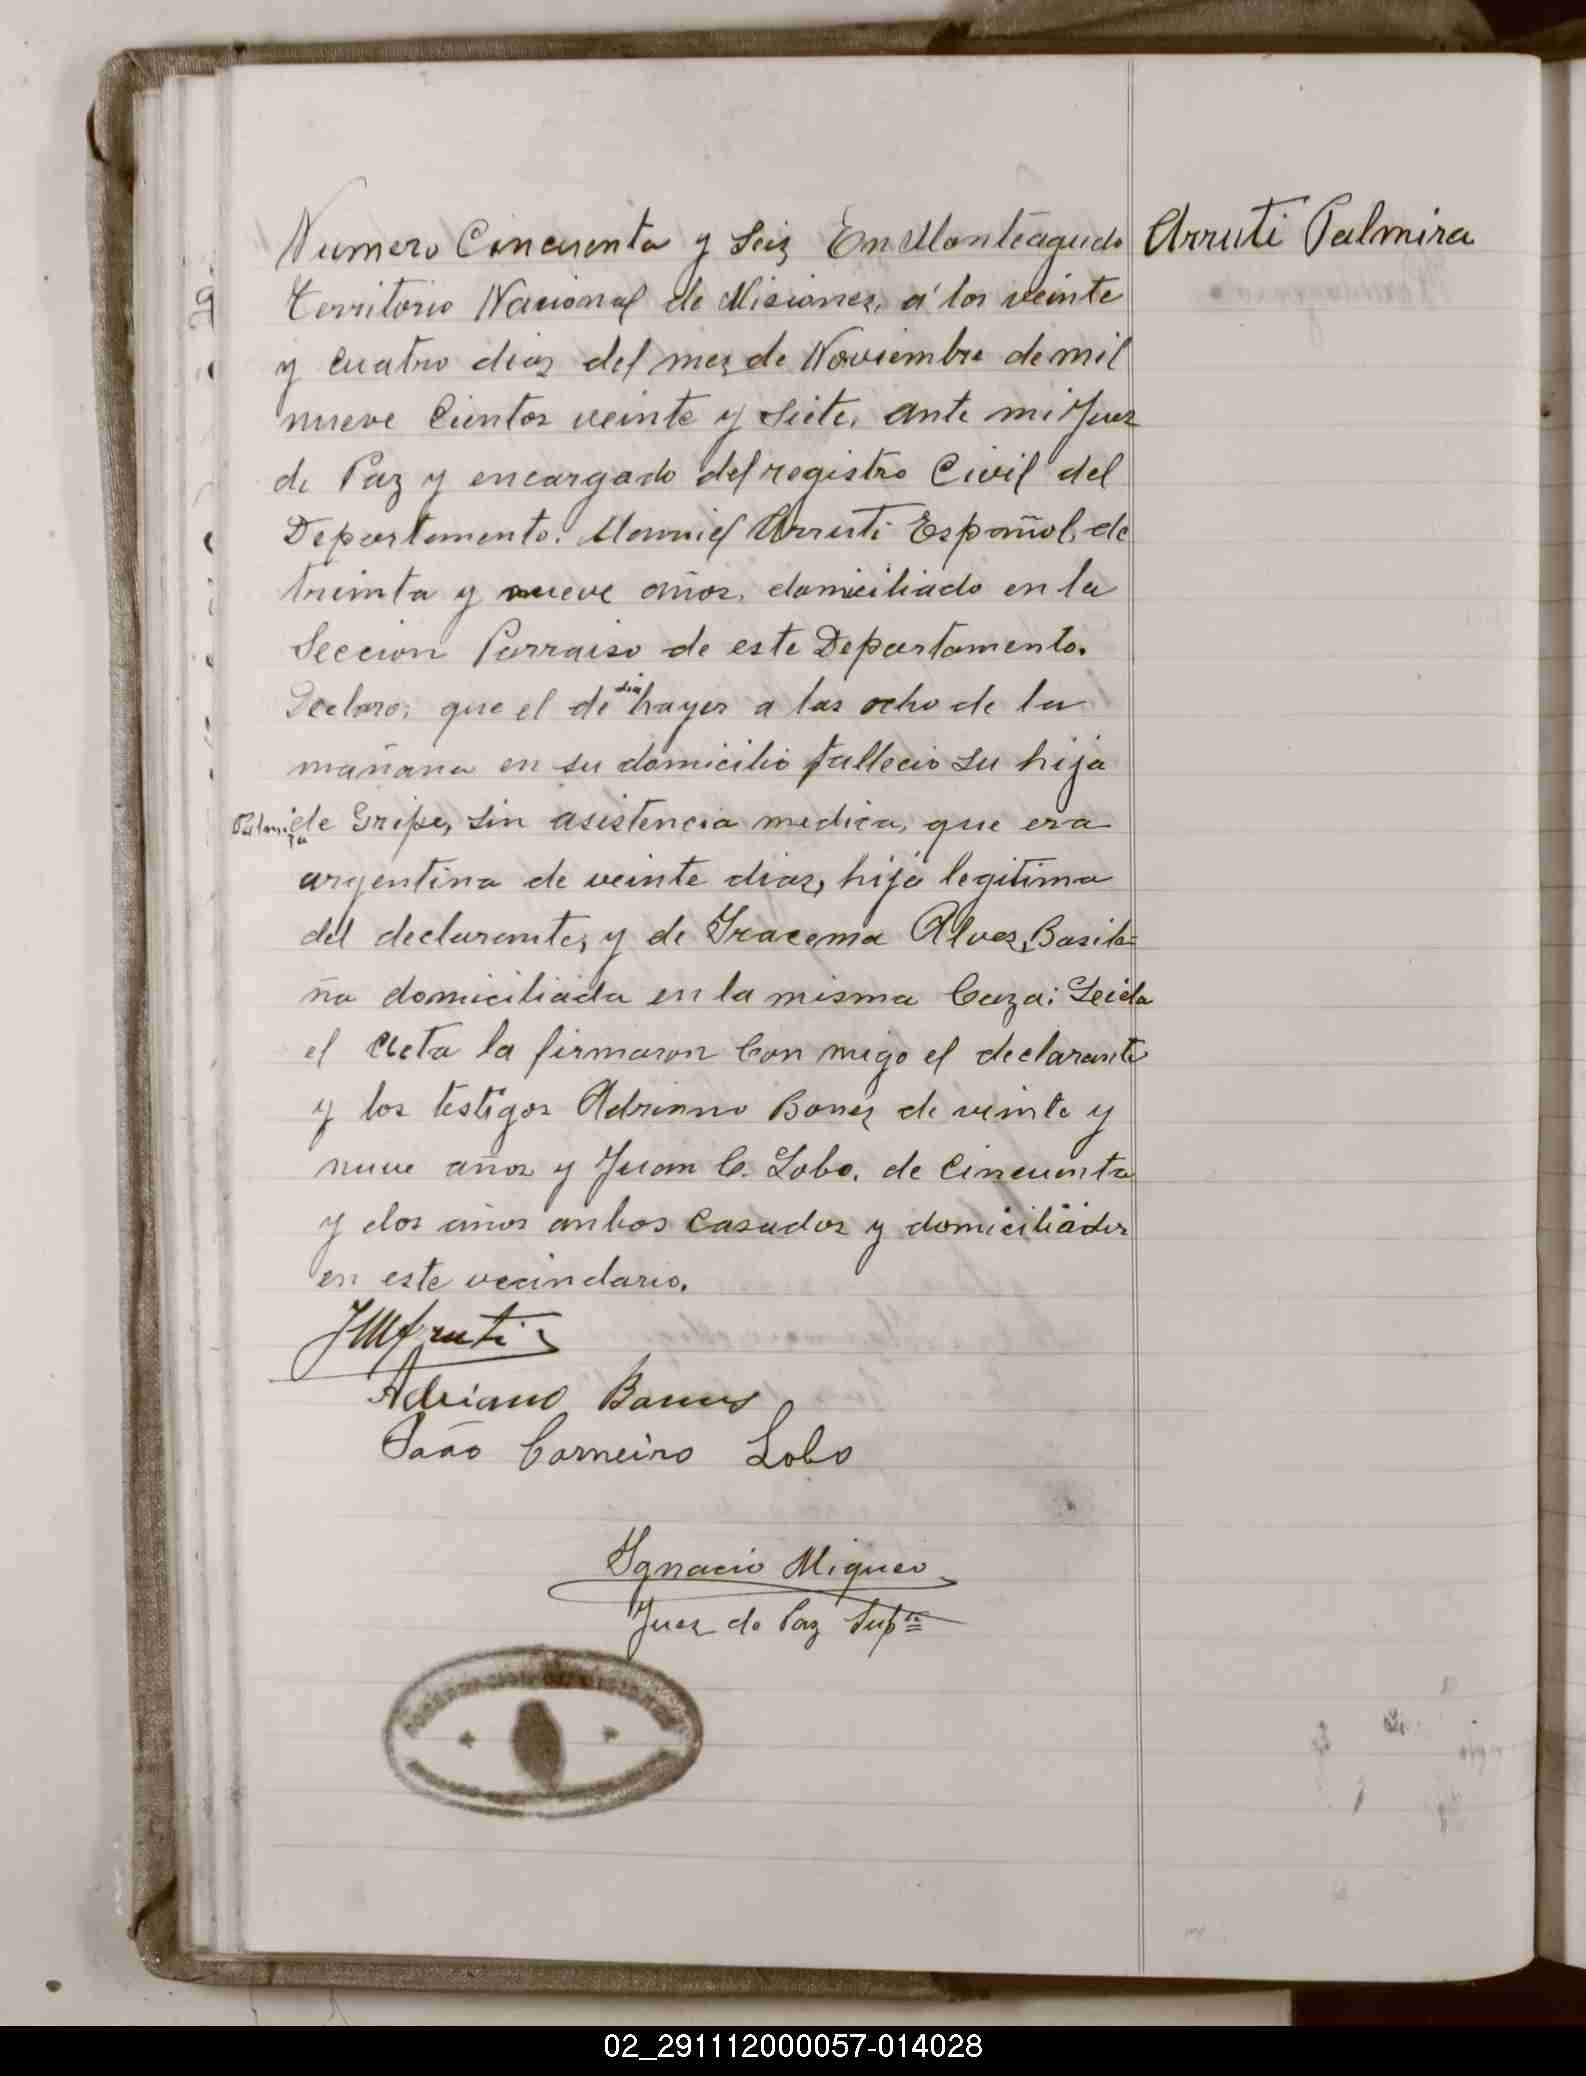 Numero Cincuenta y Seis En Monteagudo
Arruti Palmira
Territorio Nacional de Misiones, á los veinte
y cuatro dias del mes de Noviembre de mil
nueve Cientos veinte y Siete, ante mi Juez
de Paz y encargado del registro Civil del
Departamento. Manuel Arruti Español, de
treinta y nueve años, domiciliado en la
Seccion Parraiso de este Departamento.
Declaro; que el de dia hayer a las ocho de la
mañana en su domicilio fallecio su hija
Palmira de Gripe, sin asistencia medica, que era
argentina de veinte dias, hija legitima
del declarante, y de Iracema Alves, Basile=
ña domiciliada en la misma Caza: Leida
el Acta la firmaron Con migo el declarante
y los testigos Adriano Bones de veinte y
nueve años y Juan C. Lobo, de Cincuenta
y dos años anbos Casados y domiciliados
en este vecindario.
JMArruti
Adriano
João Carneiro Lobo
Ignacio Migueo
Juez de Paz Sup te
02_291112000057-014028